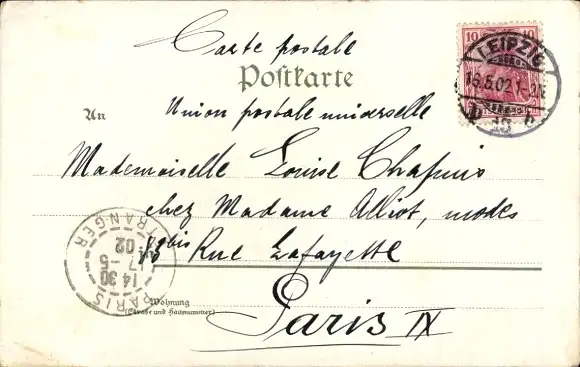 Carte postale
Postkarte
An
Union postale universelle
Mademoiselle Louise Chapuis
chez Madame Alliot, modes
83 bis Rue Lafayette
Paris IX
Wohnung
(Straße und Hausnummer)
10 10
LEIPZIG
16.5.02
13
PARIS ETRANGER
14 30
17 -5
02